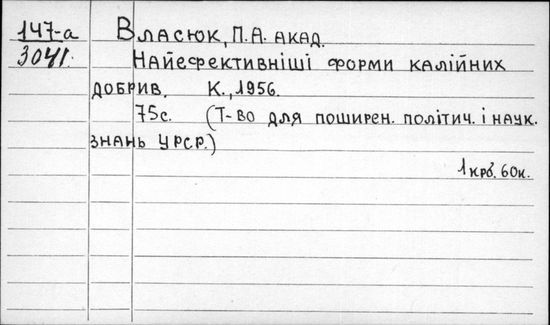 147-а
3041.
Власюк, П.А. акад.
Найефективніші форми калійних
добрив. К., 1956.
75с. (Т-во для поширен. політич. і наук.
знань УРСР.)
1 крб. 60к.